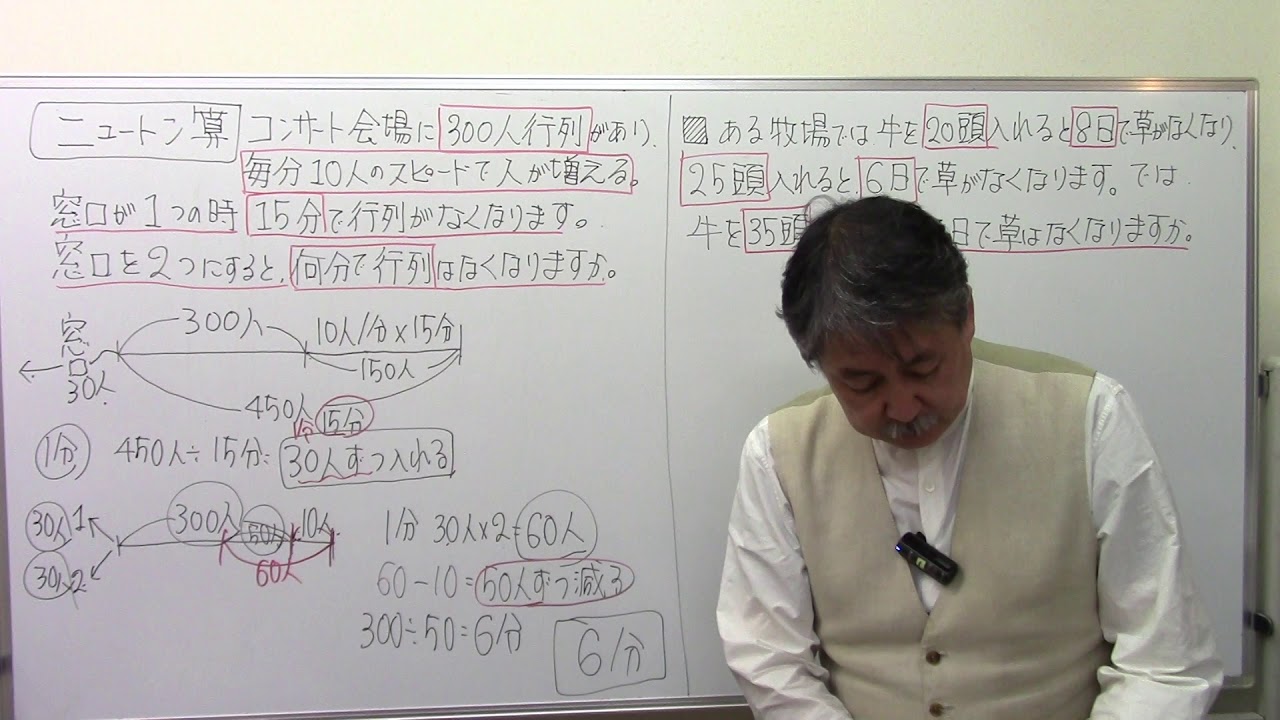 ニュートン算 コンサート会場に300人行列があり、
毎分10人のスピードで人が増える。
窓口が1つの時 15分で行列がなくなります。
窓口を2つにすると、何分で行列はなくなりますか。
300人 10人/分×15分
窓口 30人
150人
450人
1分 15分
1分 450人÷15分= 30人ずつ入れる
30人 1 300人 50人 10人
30人 2 60人
1分 30人×2=60人
60-10=50人ずつ減る
300÷50=6分
6分
ある牧場では 牛を20頭入れると8日で草がなくなり、
25頭入れると、6日で草がなくなります。では
牛を35頭 日で草はなくなりますか。